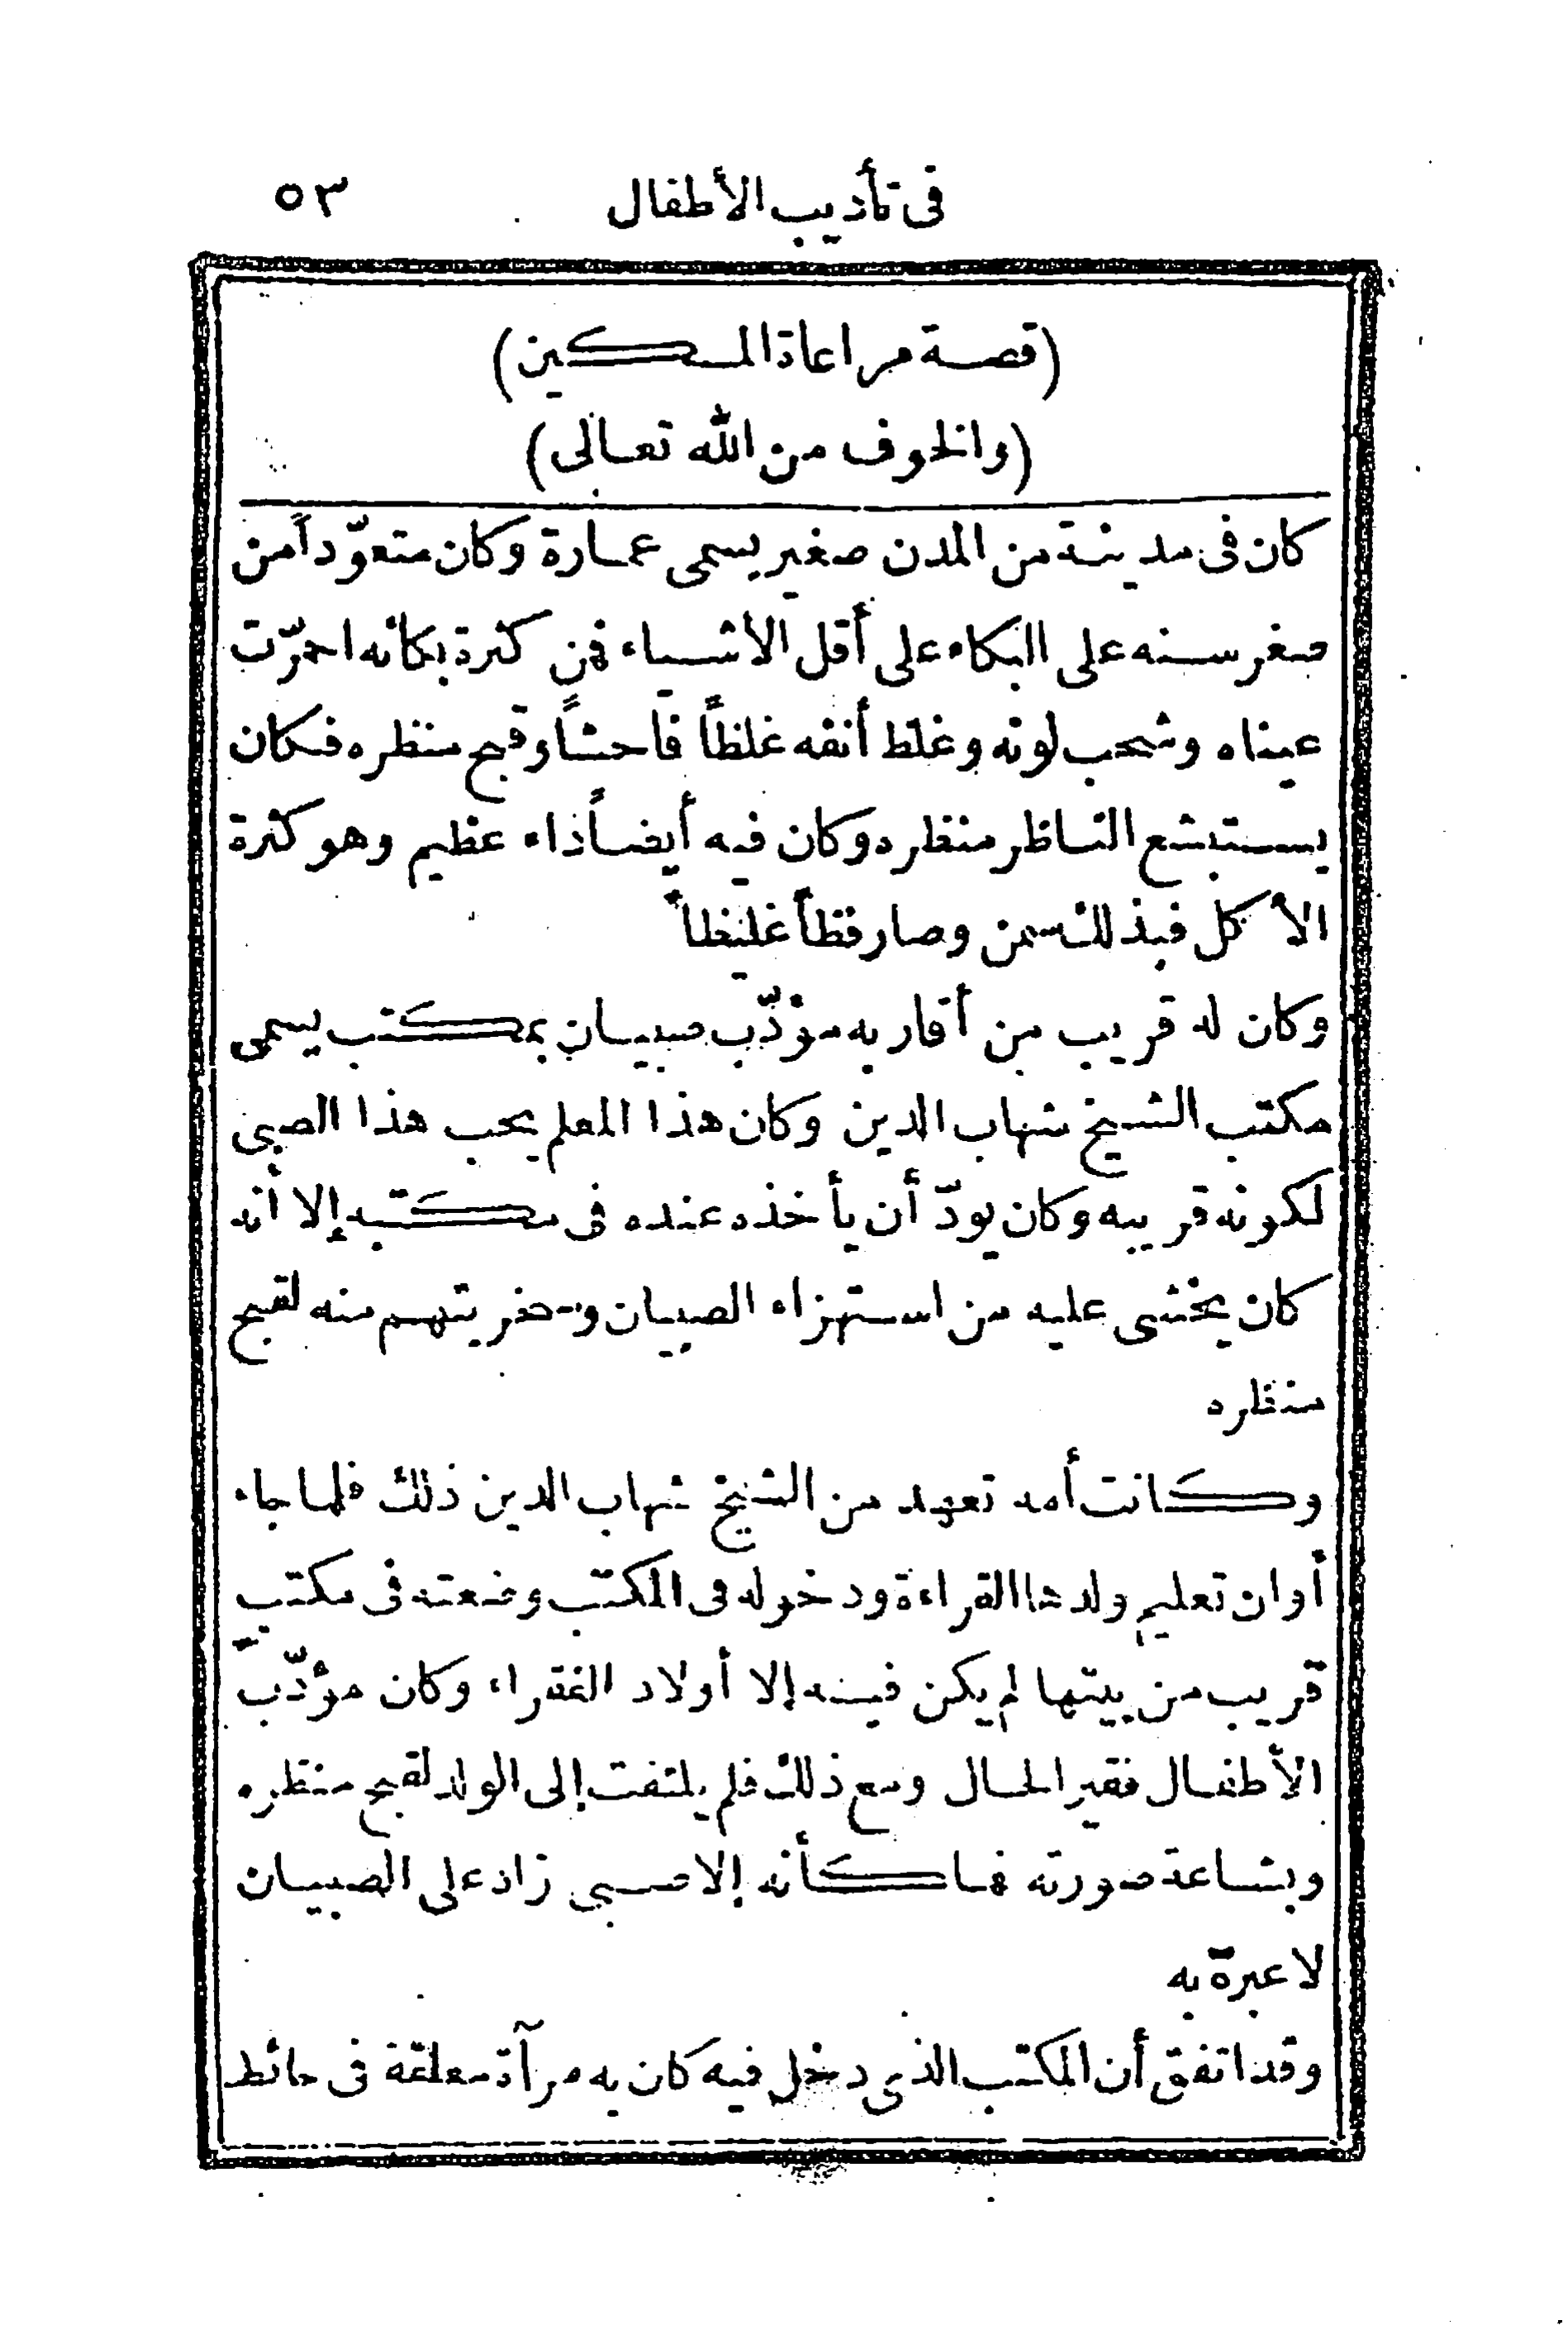 فى تأديب الأطفال ٥٣
(قصة مراعاة المسكين)
(والخوف من الله تعالى)
كان فى مدينة من المدن صغير يسمى عمارة وكان متعوّداً من
صغر سنه على البكاء على أقل الأشياء فمن كثرة بكائه احمرّت
عيناه وشحب لونه وغلظ أنفه غلظاً فاحشاً وقبح منظره فكان
يستبشع الناظر منظره وكان فيه أيضاً داء عظيم وهو كثرة
الأكل فبذلك سمن وصار فظاً غليظاً
وكان له قريب من أقاربه مؤدّب صبيان بمكتب يسمى
مكتب الشيخ شهاب الدين وكان هذا المعلم يحب هذا الصبى
لكونه قريبه وكان يودّ أن يأخذه عنده فى مكتبه إلا أنه
كان يخشى عليه من استهزاء الصبيان وسخريتهم منه لقبح
منظره
وكانت أمه تعهد من الشيخ شهاب الدين ذلك فلما جاء
أوان تعليم ولدها القراءة ودخوله فى المكتب وضعته فى مكتب
قريب من بيتها لم يكن فيه إلا أولاد الفقراء وكان مؤدّب
الأطفال فقير الحال ومع ذلك فلم يلتفت إلى الولد لقبح منظره
وبشاعة صورته فما كأنه إلا صبى زاد على الصبيان
لا عبرة به
وقد اتفق أن المكتب الذى دخل فيه كان به مرآة معلقة فى حائط